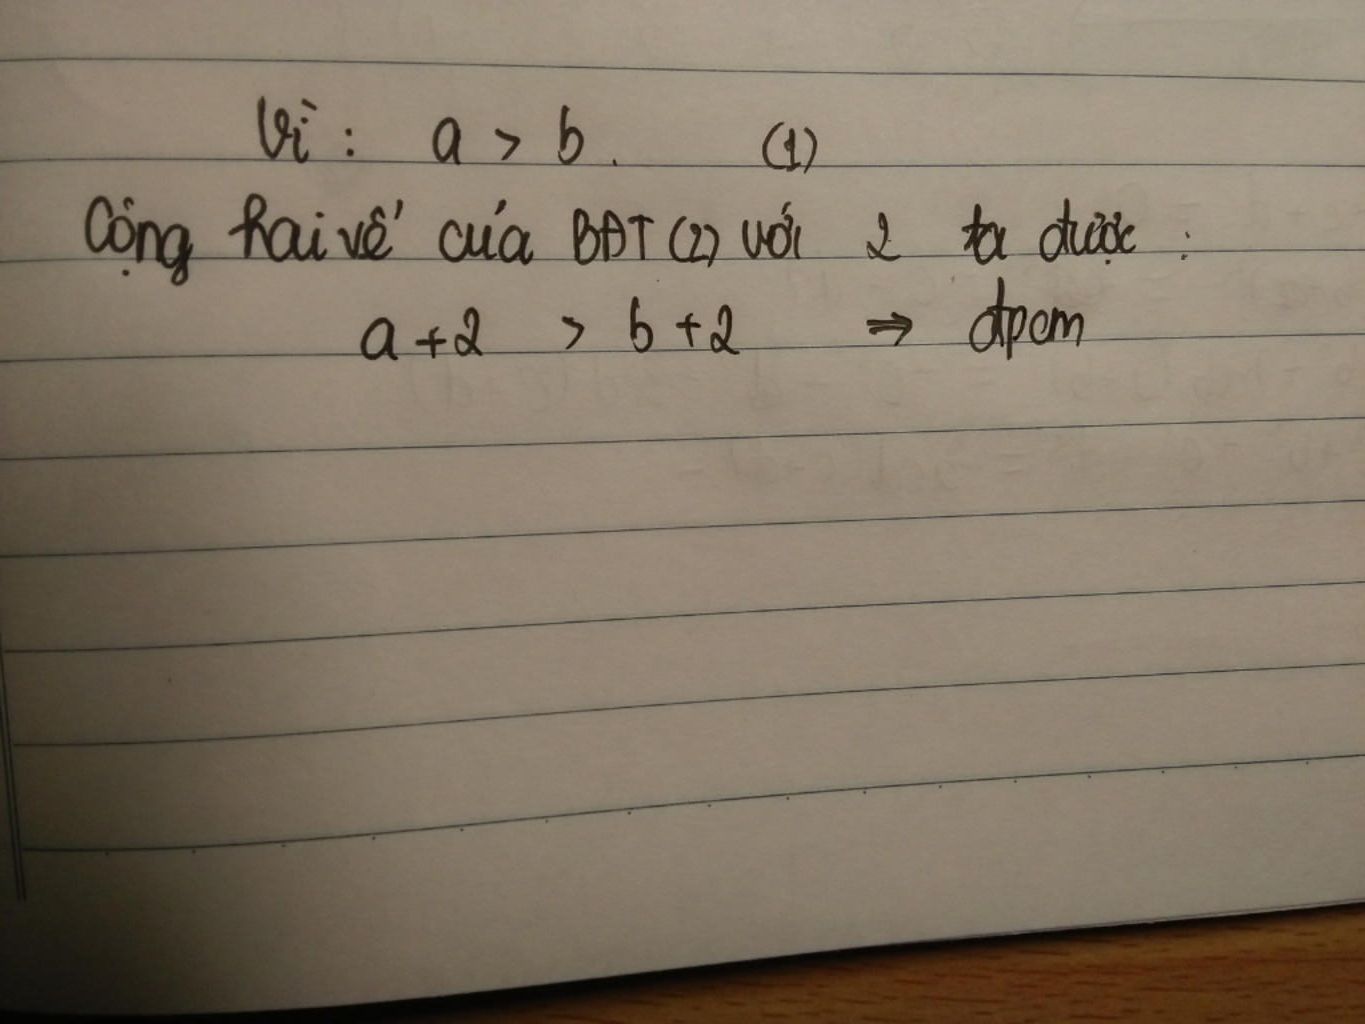 Vì : a > b . (1)
Cộng hai vế của BĐT (2) với 2 ta được :
a + 2 > b + 2 ⇒ đpcm